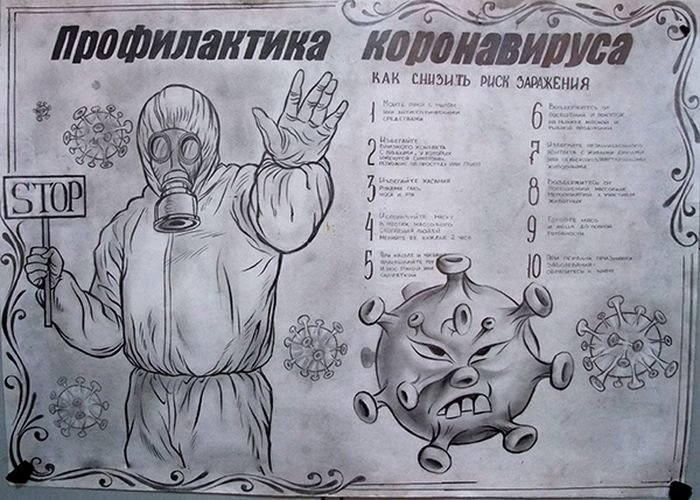 Профилактика коронавируса
КАК СНИЗИТЬ РИСК ЗАРАЖЕНИЯ
STOP
1 Мойте руки с мылом
или антисептическими
средствами
2 Избегайте
близкого контакта
с людьми, у которых
имеются симптомы,
похожие на простуду или грипп
3 Избегайте касания
руками глаз,
носа и рта
4 Используйте маску
в местах массового
скопления людей
меняйте её каждые 2 часа
5 При кашле и
прикрывайте рот
и нос рукой или
салфеткой
6 Воздержитесь от
посещения и покупок
на рынках мясной и
рыбной продукции
7 Избегайте незащищённого
контакта с живыми дикими
или сельскохозяйственными
животными
8 Воздержитесь от
посещения массовых
мероприятий с участием
животных
9 мясо
и яйца до полной
готовности
10 При первых признаках
заболевания
обратитесь к врачу